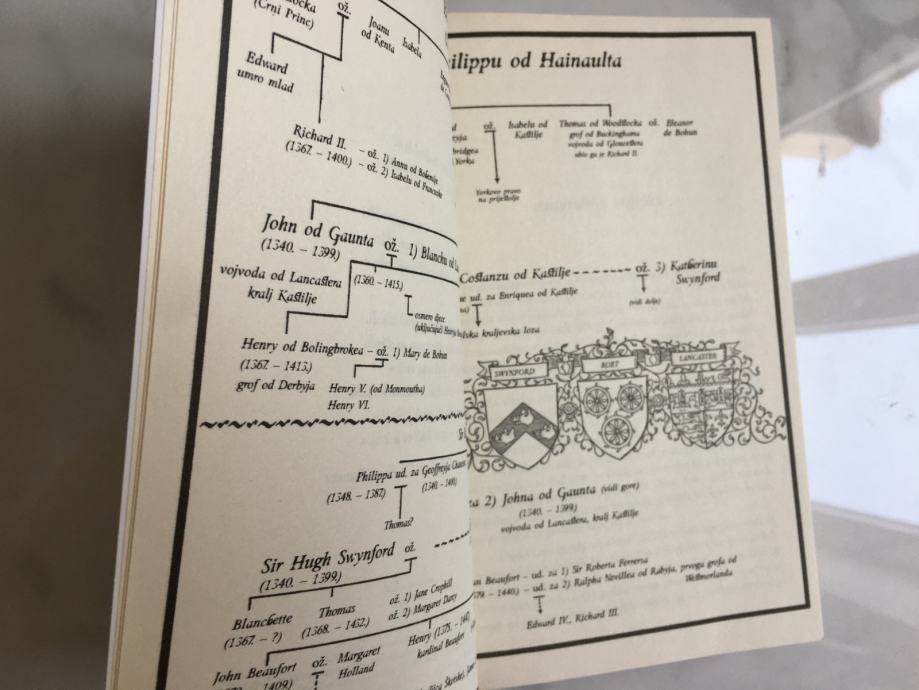 (Crni Princ)
ož.
Joanu
od Kenta
Isabela
Edward
umro mlad
Richard II.
(1367. – 1400.)
– ož. 1) Annu od Bohemije
– ož. 2) Isabelu od Francuske
John od Gaunta ož. 1) Blanchu od
(1340. – 1399.)
vojvoda od Lancastera
kralj Kastilje
(1360. – 1415.)
osmero djece
(uključujući
Henry od Bolingbrokea – ož. 1) Mary de Bohun
(1367. – 1413.)
grof od Derbyja
Henry V. (od Monmoutha)
Henry VI.
Philippa ud. za Geoffreyja
(1348. – 1387.)
(1340. – 1400.)
Thomas?
Sir Hugh Swynford ož.
(1340. – 1399.)
Blanchette
(1367. – ?)
Thomas
(1368. – 1432.)
ož. 1) Jane Crophill
ož. 2) Margaret Darcy
John Beaufort
1409.)
ož.
Margaret
Holland
Henry (1375. –
kardinal Beaufort
od Hainaulta
ož.
Isabelu od
Kastilje
Thomas od Woodstocka
grof od Buckinghama
vojvoda od Gloucestera
ubio ga je Richard II.
ož.
Eleanor
de Bohun
Yorkovo pravo
na prijestolje
Costanzu od Kastilje
ož. 3) Katherinu
Swynford
ud. za Enriquea od Kastilje
(vidi dolje)
kraljevska loza
SWYNFORD
ROET
LANCASTER
za 2) Johna od Gaunta (vidi gore)
(1340. – 1399.)
vojvoda od Lancastera, kralj Kastilje
Beaufort – ud. za 1) Sir Roberta Ferrersa
– 1440.) – ud. za 2) Ralpha Nevillea od Rabyja, prvoga grofa od
Westmorlanda
Edward IV., Richard III.